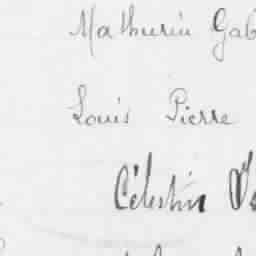 Mathurin Gab
Louis Pierre
Célestin